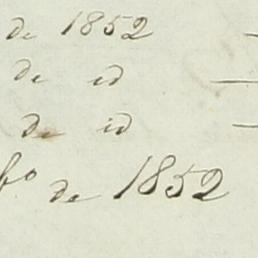 de 1852
de id
de id
fo de 1852